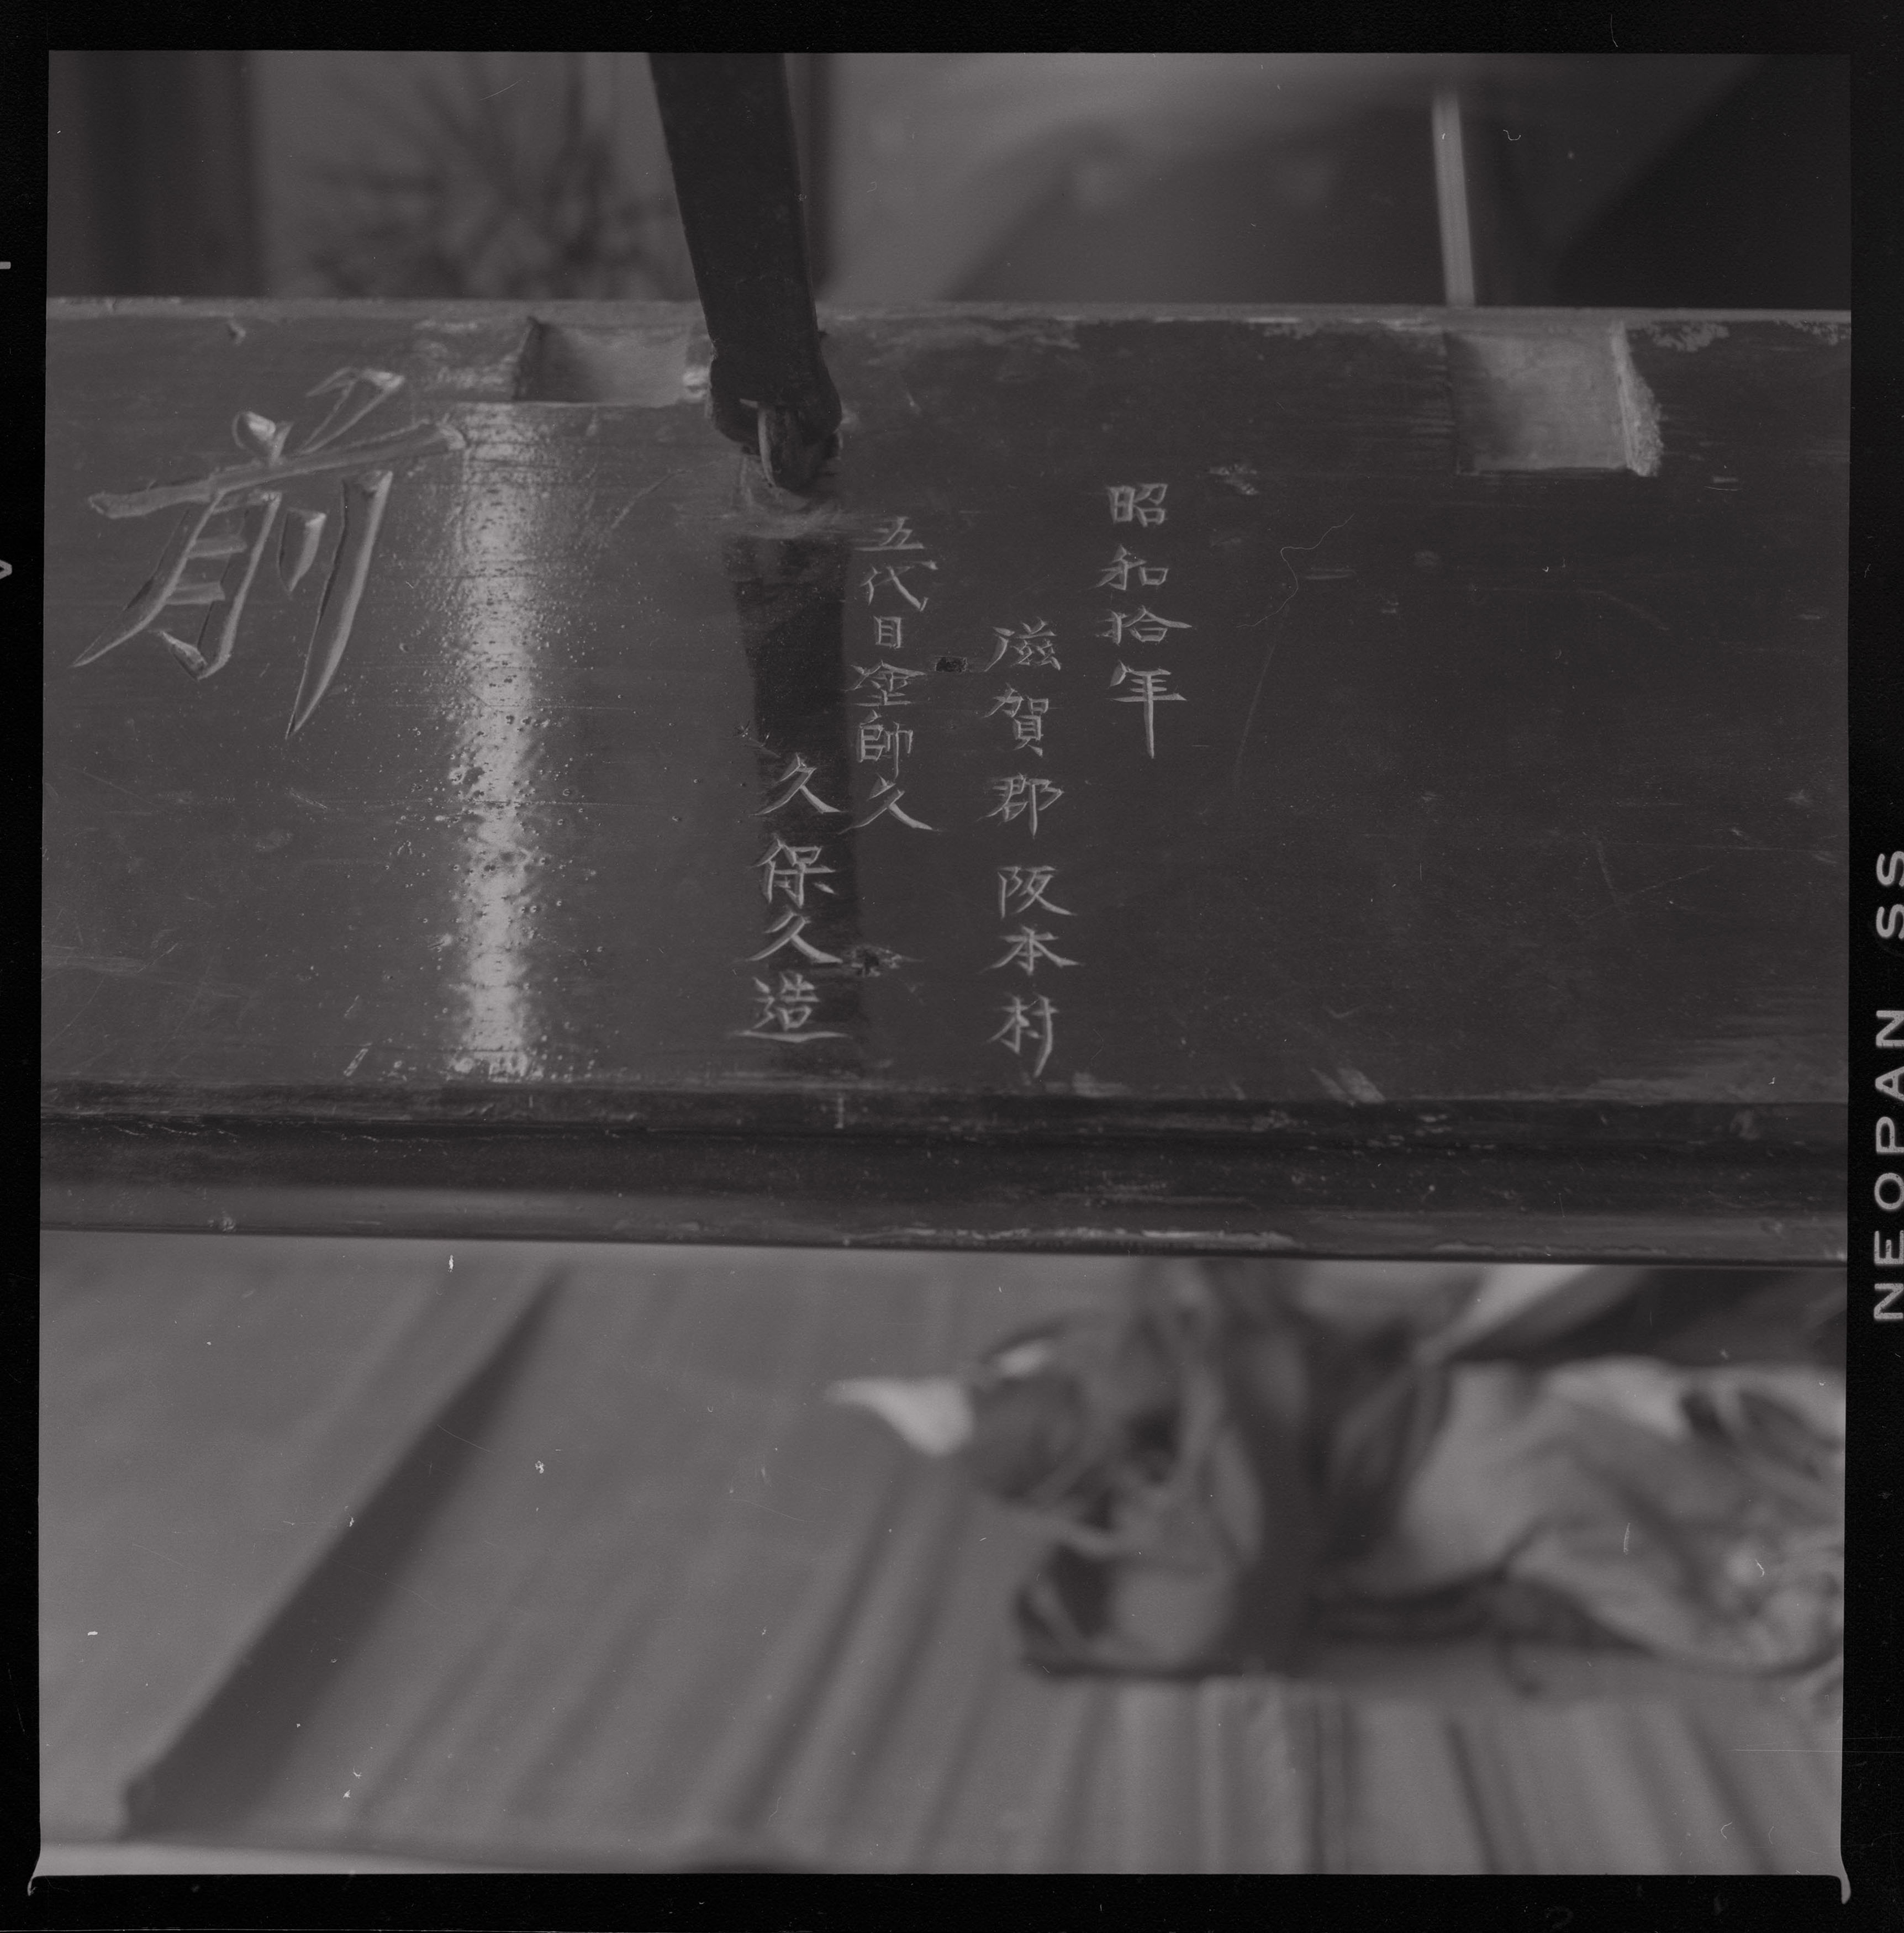 昭和拾年
滋賀郡阪本村
五代目塗師久
久保久造
前
NEOPAN SS